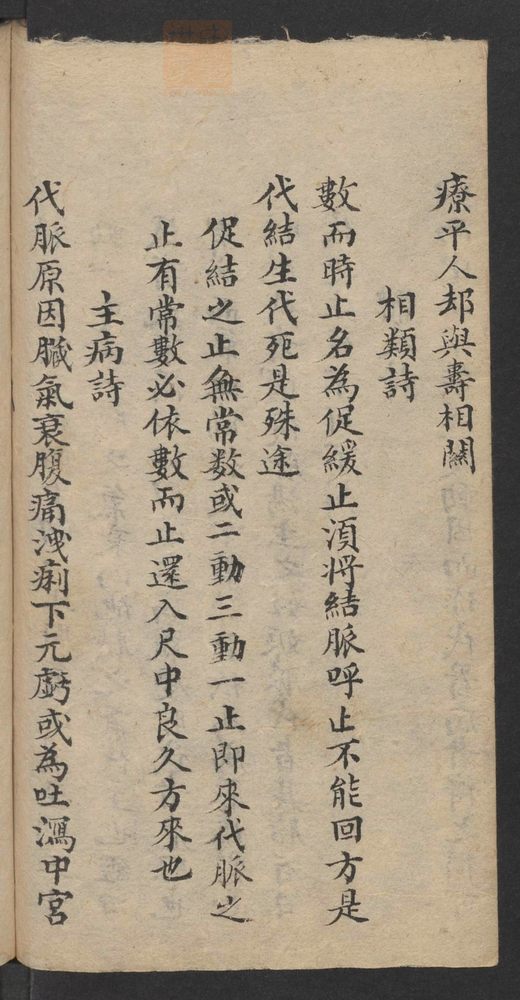 療平人却與壽相關
相類詩
數而時止名為促緩止湏将結脈呼止不能回方是
代結生代死是殊途
促結之止無常数或二動三動一止即來代脈之
止有常數必依數而止還入尺中良久方來也
主病詩
代脈原因臟氣衰腹痛洩痢下元虧或為吐瀉中宮